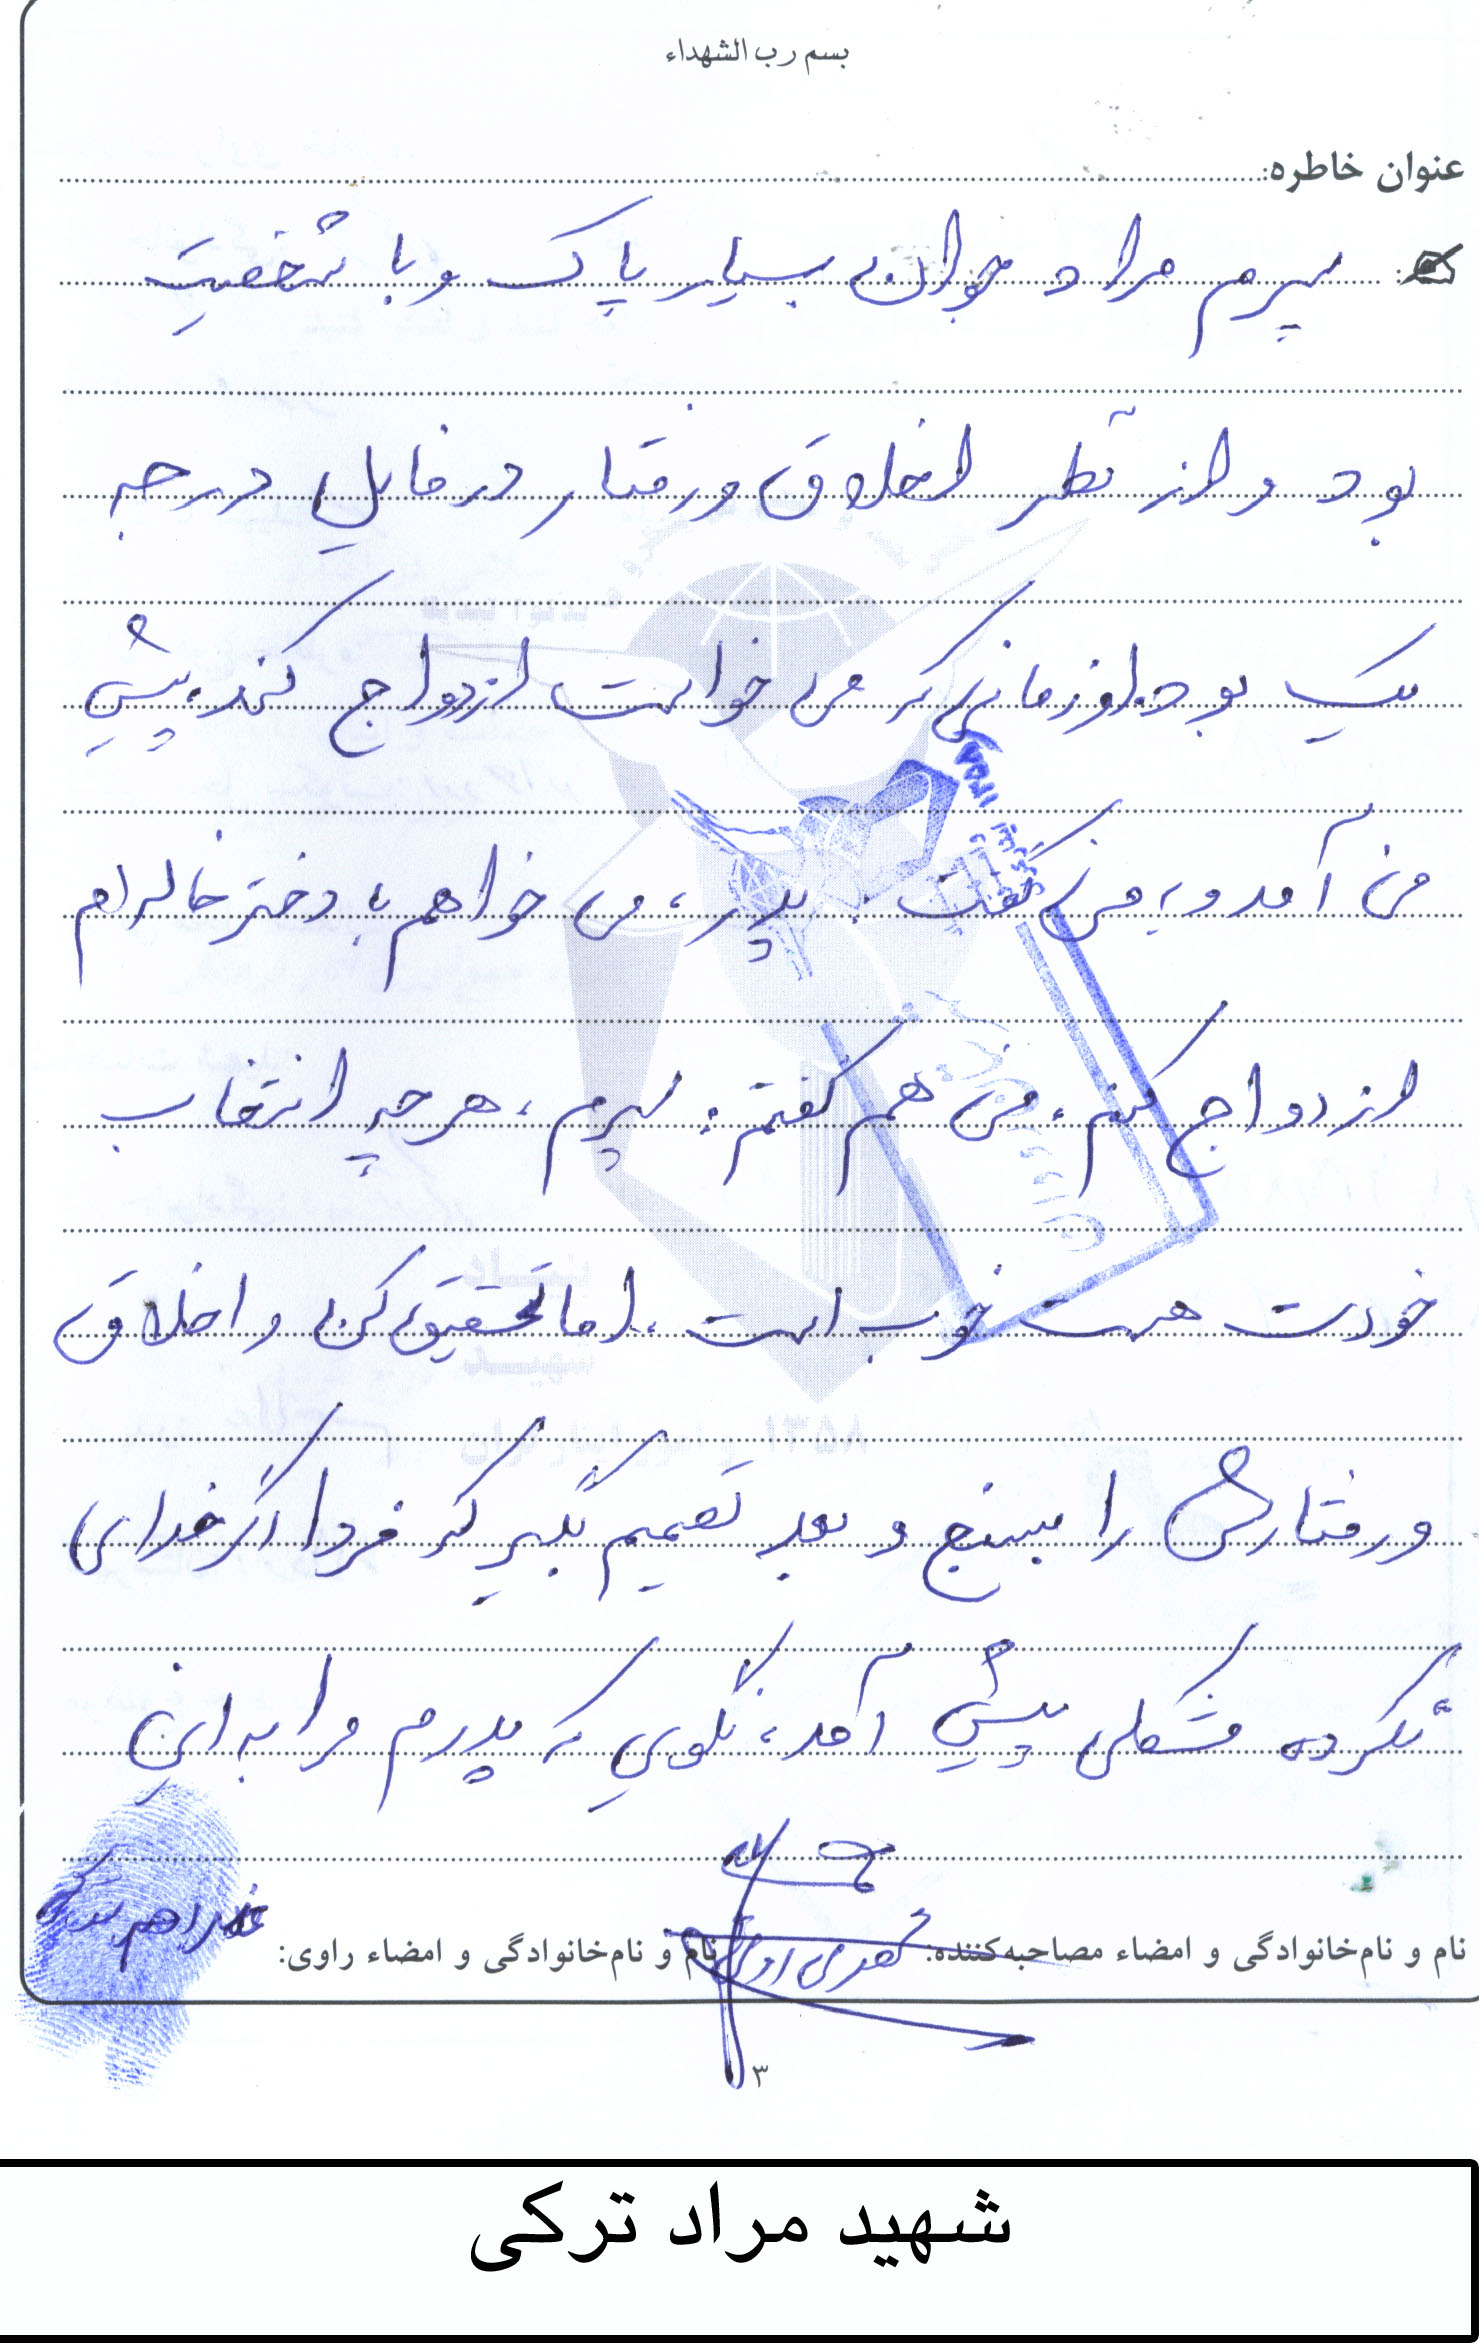 بسم رب الشهداء
عنوان خاطره:
پسرم مراد جوانی بسیار پاک و با شخصیت
بود و از نظر اخلاق و رفتار در فامیل درجه
یک بود. او زمانی که می خواست ازدواج کند، پیش
من آمد و به من گفت: پدر، می خواهم با دختر خاله ام
ازدواج کنم، من هم گفتم: پسرم، هر چه انتخاب
خودت هست خوب است، اما تحقیق کن و اخلاق
و رفتارش را بسنج و بعد تصمیم بگیر که فردا اگر خدای
نکرده مشکلی پیش آمد، نگویی که پدرم مرا به این
نام و نام‌خانوادگی و امضاء مصاحبه‌کننده: نام و نام‌خانوادگی و امضاء راوی:
۳
شهید مراد ترکی